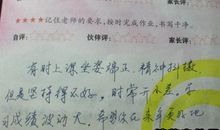 ★★★★记住老师的要求,按时完成作业,书写干净。
自评: 伙伴评: 家长评:
有时上课坐姿端正,精神抖擞,
但是坚持得不好,时常
习成绩波动大,希望你在来年更好地